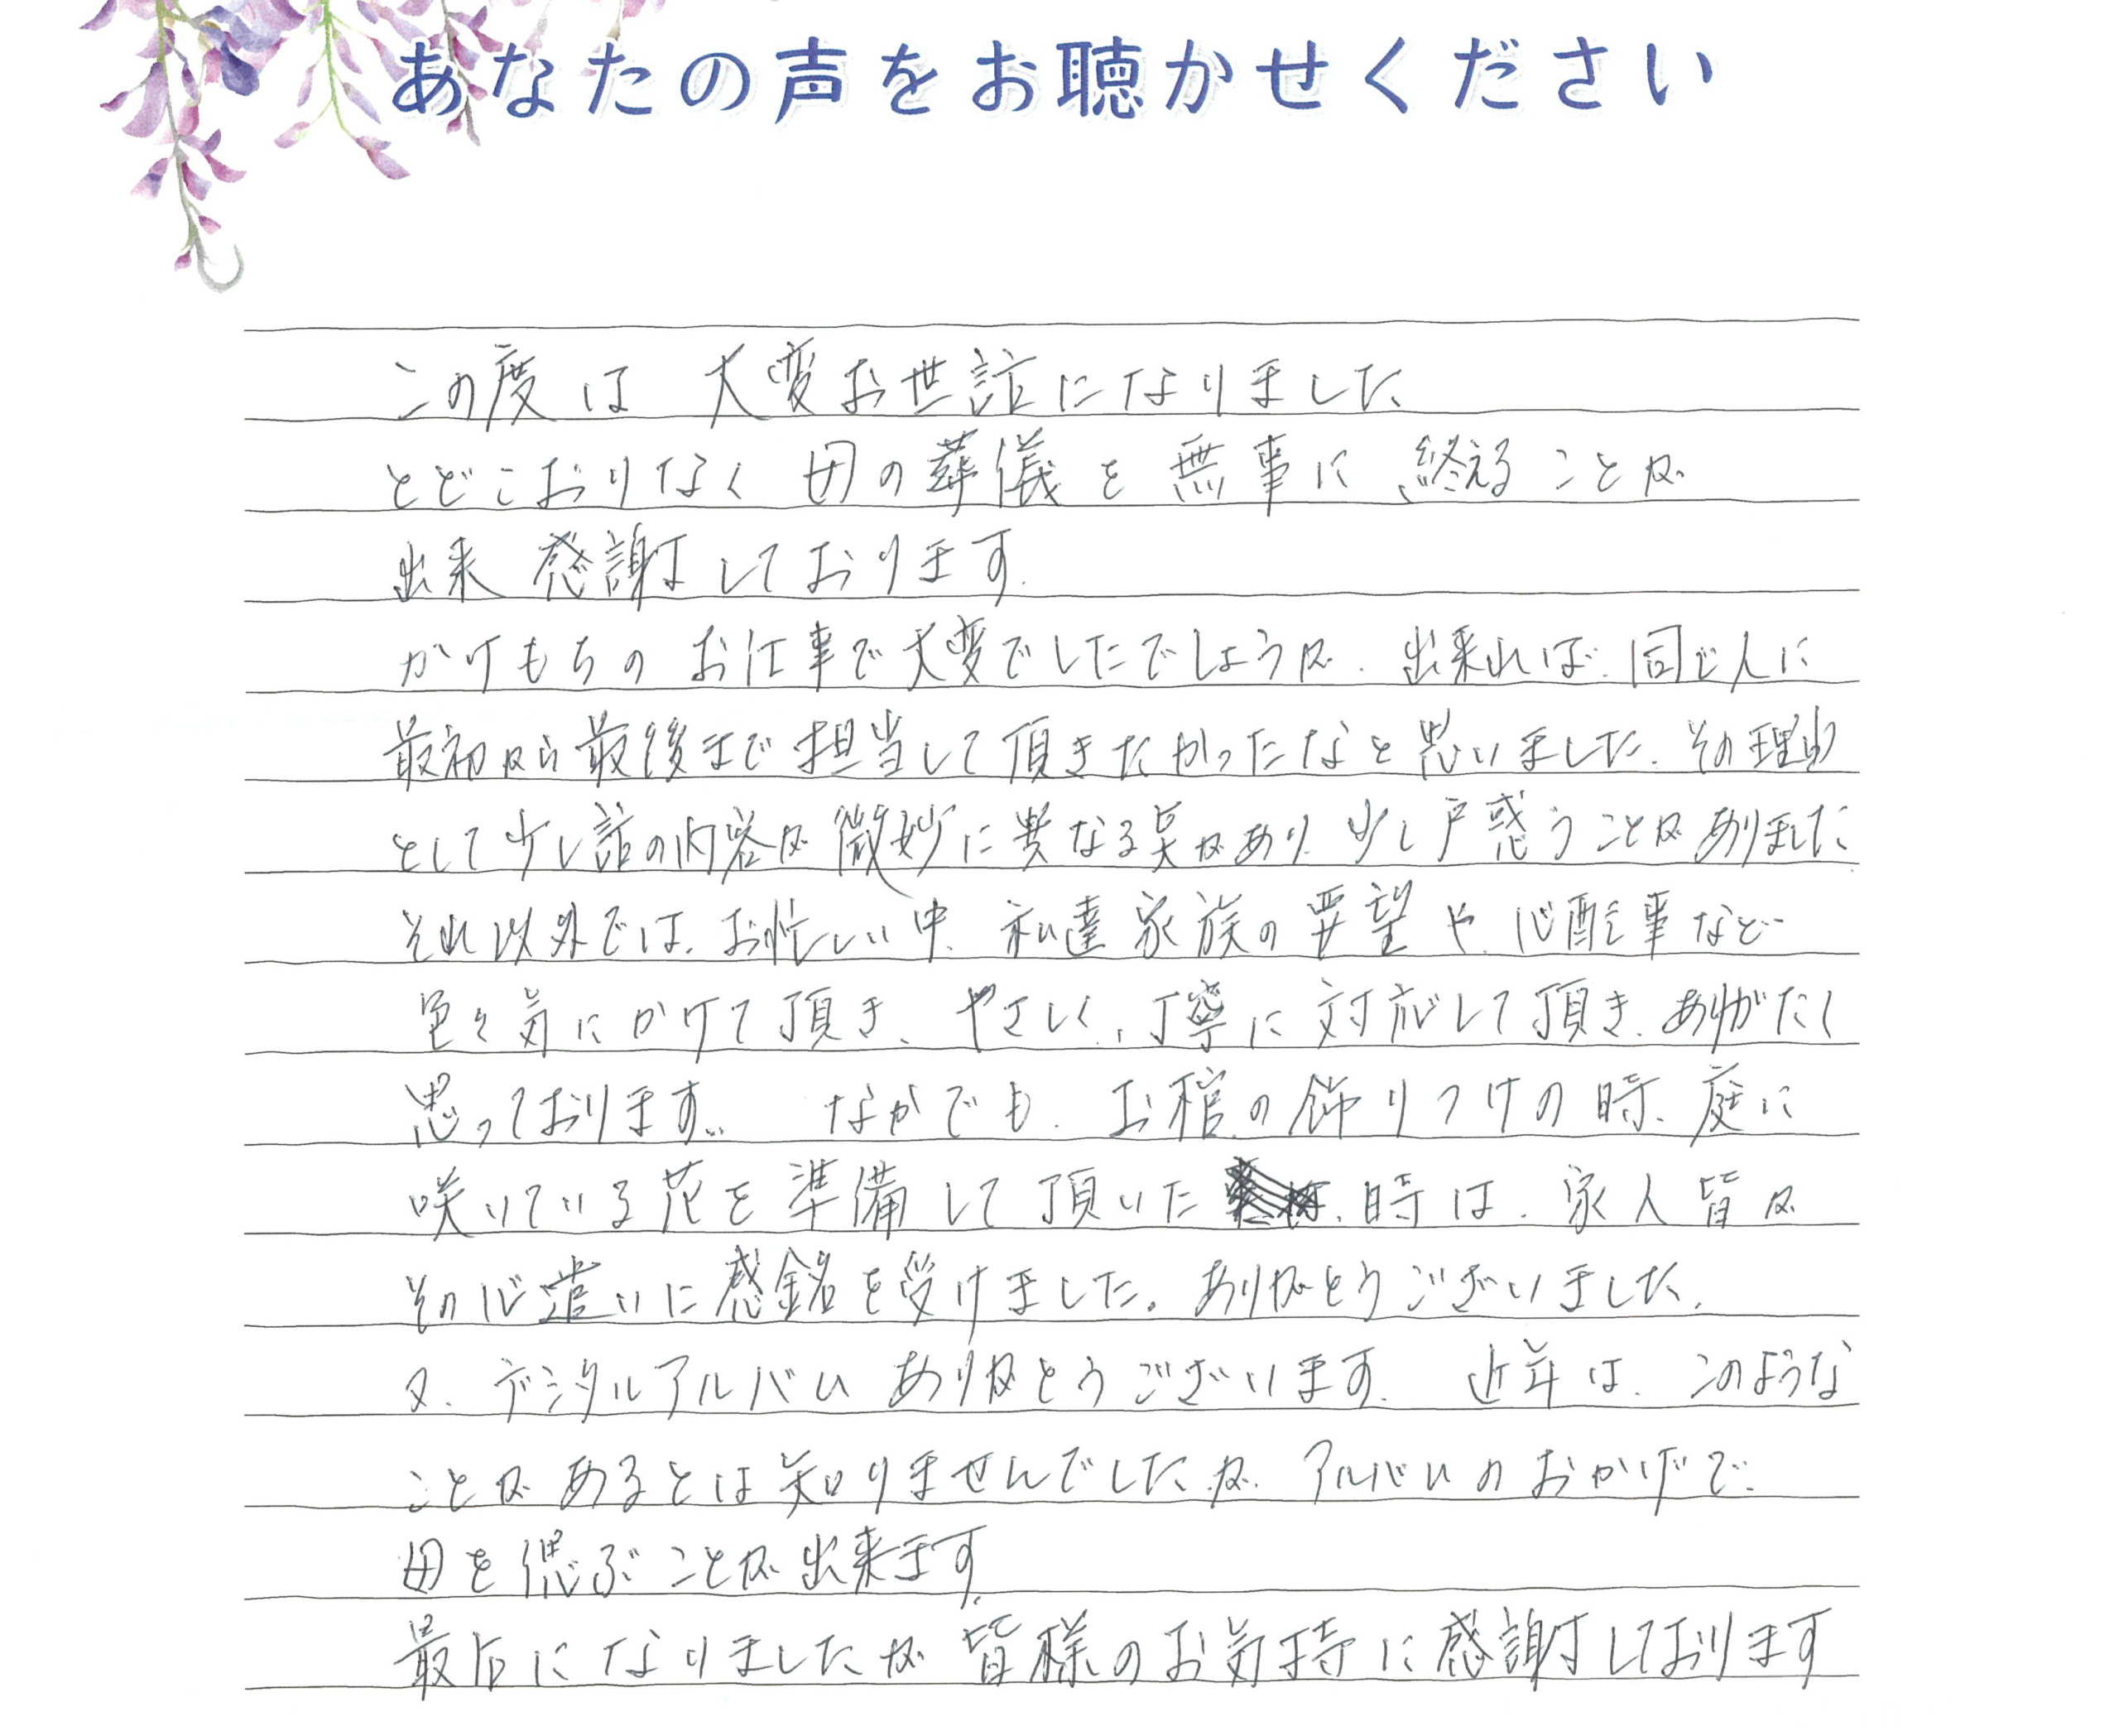 あなたの声をお聴かせください
この度は 大変お世話になりました
とどこおりなく 母の葬儀を 無事に 終えることが
出来 感謝しております.
かけもちの お仕事で大変でしたでしょうが、出来れば、同じ人に
最初から最後まで担当して頂きたかったなと思いました、その理由
として少し話の内容が微妙に異なる点があり、少し戸惑うことがありました
それ以外では、お忙しい中、私達家族の要望や、心配事など
色々気にかけて頂き、やさしく、丁寧に対応して頂き、ありがたく
思っております。 なかでも、お棺の飾りつけの時、庭に
咲いている花を準備して頂いた 時は、家人皆が
その心遣いに感銘を受けました。ありがとうございました。
又、デジタルアルバム ありがとうございます。 近年は、このような
ことがあるとは知りませんでしたが、アルバムのおかげで
母を偲ぶことが出来ます。
最后になりましたが 皆様のお気持に感謝しております